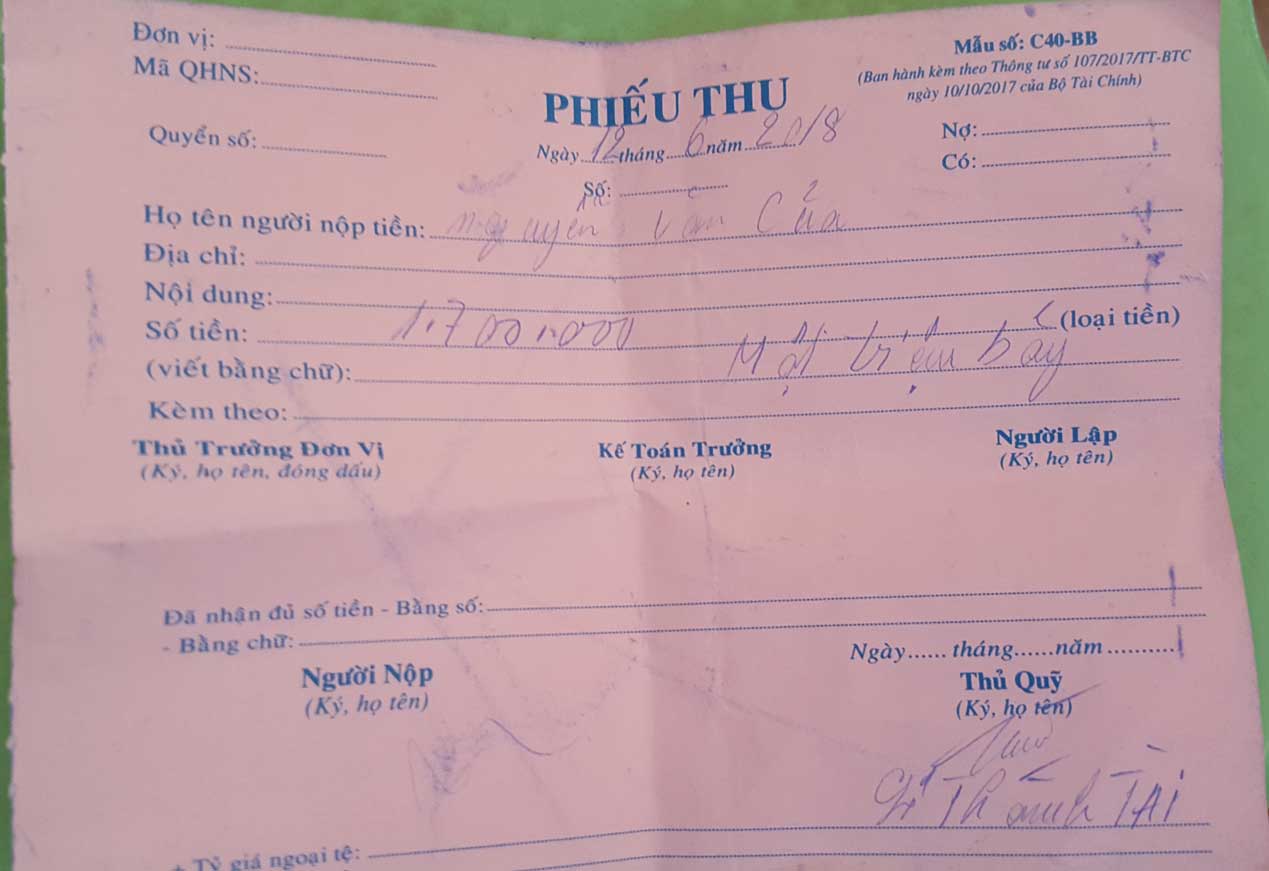 Đơn vị:
Mẫu số: C40-BB
Mã QHNS:
(Ban hành kèm theo Thông tư số 107/2017/TT-BTC
ngày 10/10/2017 của Bộ Tài Chính)
PHIẾU THU
Quyển số:
Ngày 12 tháng 6 năm 2018
Nợ:
Có:
Số:
Họ tên người nộp tiền: Nguyễn Văn Của
Địa chỉ:
Nội dung:
Số tiền: 1.700.000 (loại tiền)
(viết bằng chữ): Một triệu bảy
Kèm theo:
Thủ Trưởng Đơn Vị Kế Toán Trưởng Người Lập
(Ký, họ tên, đóng dấu) (Ký, họ tên) (Ký, họ tên)
Đã nhận đủ số tiền - Bằng số:
- Bằng chữ:
Ngày...... tháng......năm ...........
Người Nộp Thủ Quỹ
(Ký, họ tên) (Ký, họ tên)
Thành TÀI
+ Tỷ giá ngoại tệ: